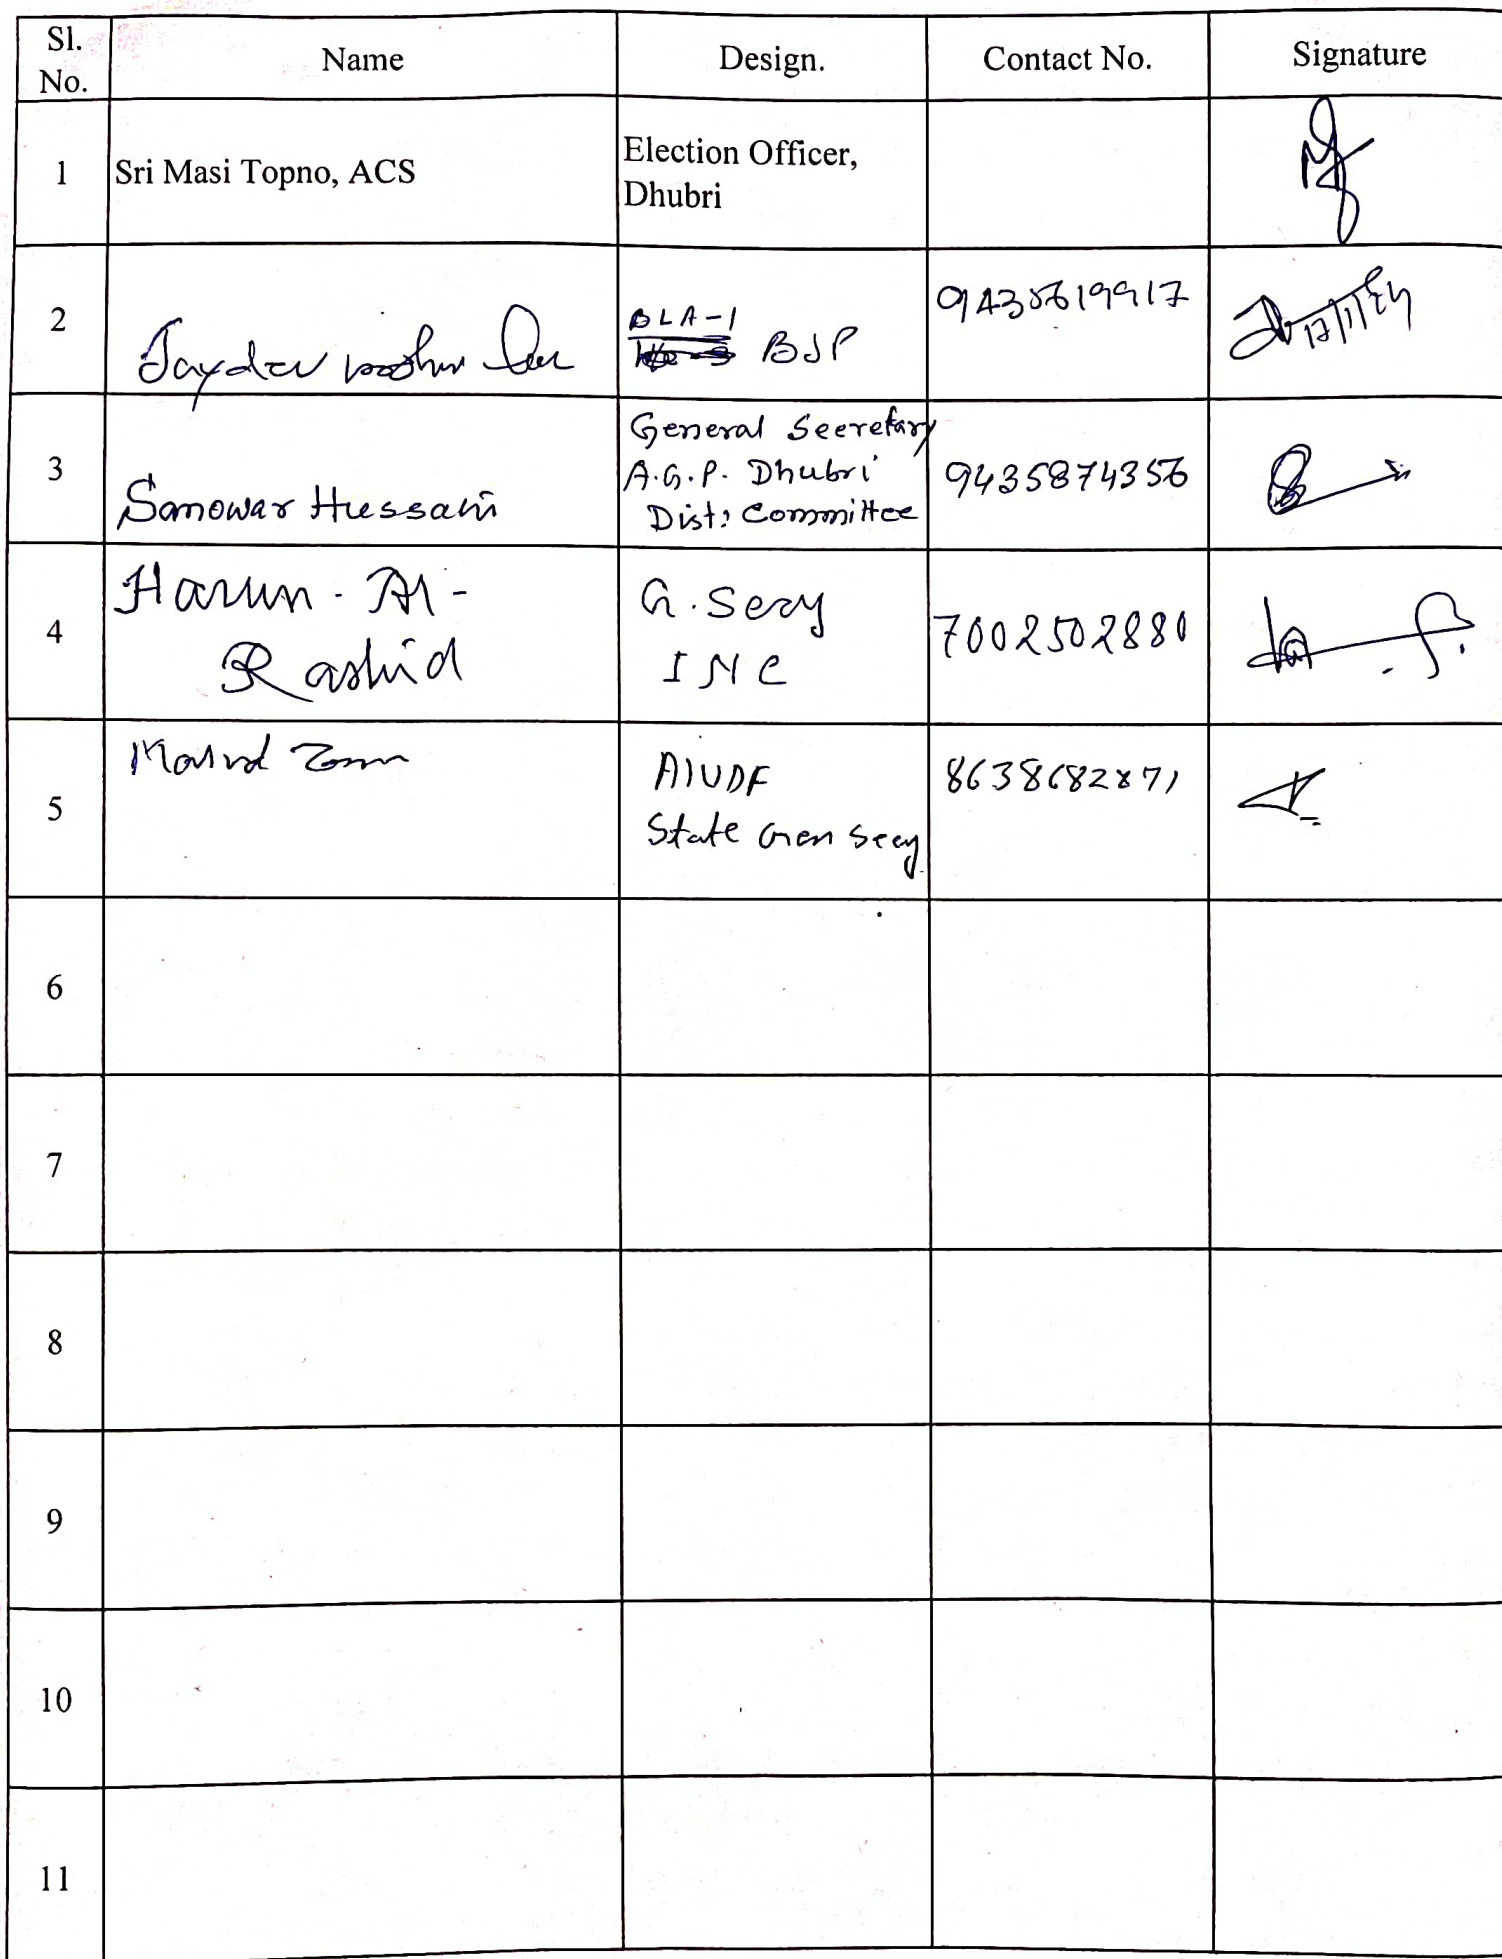 Sl.
No.
Name
Design.
Contact No.
Signature
1
Sri Masi Topno, ACS
Election Officer,
Dhubri
2
Jaydev
BLA-1
BJP
9435619917
17/1/24
3
Sanowar Hussain
General Secretary
A.G.P. Dhubri
Dist: Committee
9435874356
4
Harun-Al-
Rashid
G. Secy
INC
7002502880
5
AIUDF
State Gen Secy
8638682871
6
7
8
9
10
11